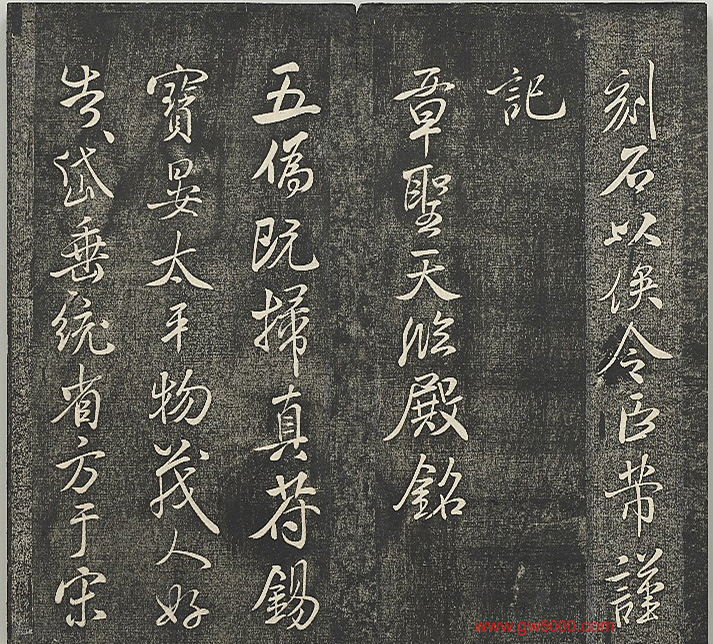 刻石以俟令臣芾謹
記
章聖天臨殿銘
五僞既掃真苻錫
寶晏太平物茂人好
告岱垂統省方于宋
www.gwj5000.com